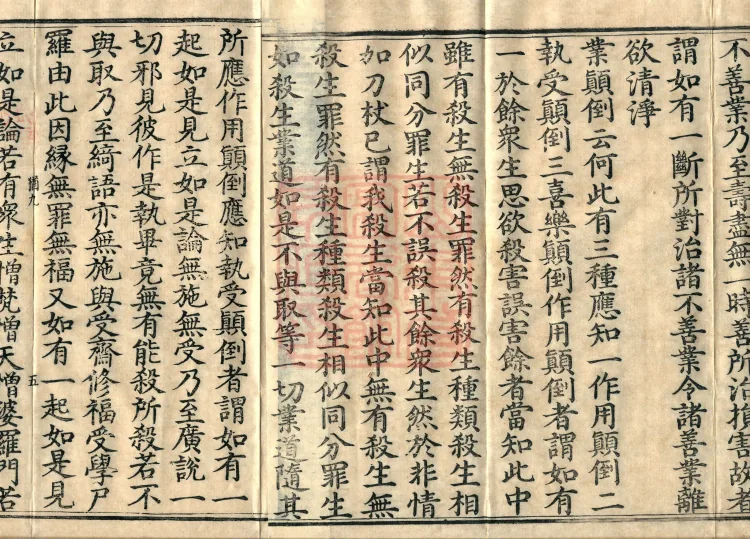 不善業乃至壽盡無一時善所治損害故者
謂如有一斷所對治諸不善業令諸善業離
欲清淨
業顛倒云何此有三種應知一作用顛倒二
執受顛倒三喜樂顛倒作用顛倒者謂如有
一於餘衆生思欲殺害誤害餘者當知此中
雖有殺生無殺生罪然有殺生種類殺生相
似同分罪生若不誤殺其餘衆生然於非情
加刀杖已謂我殺生當知此中無有殺生無
殺生罪然有殺生種類殺生相似同分罪生
如殺生業道如是不與取等一切業道隨其
所應作用顛倒應知執受顛倒者謂如有一
起如是見立如是論無施無受乃至廣說一
切邪見彼作是執畢竟無有能殺所殺若不
與取乃至綺語亦無施與受齋修福受學尸
羅由此因緣無罪無福又如有一起如是見
立如是論若有衆生憎梵憎天憎婆羅門若
五